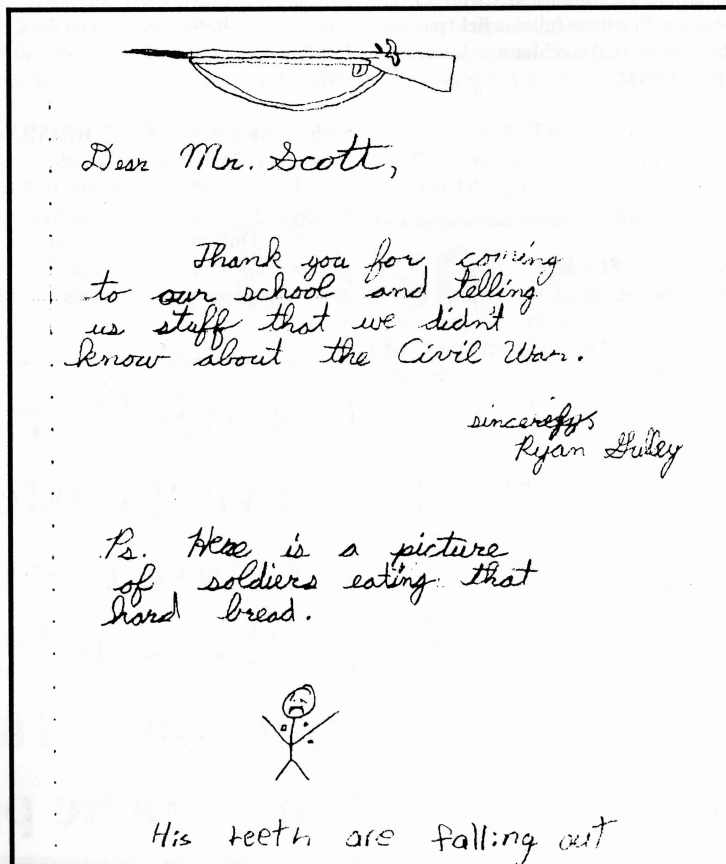 Dear Mr. Scott,
Thank you for coming
to our school and telling
us stuff that we didn't
know about the Civil War.
sincerely,
Ryan
Ps. Here is a picture
of soldiers eating that
hard bread.
His teeth are falling out